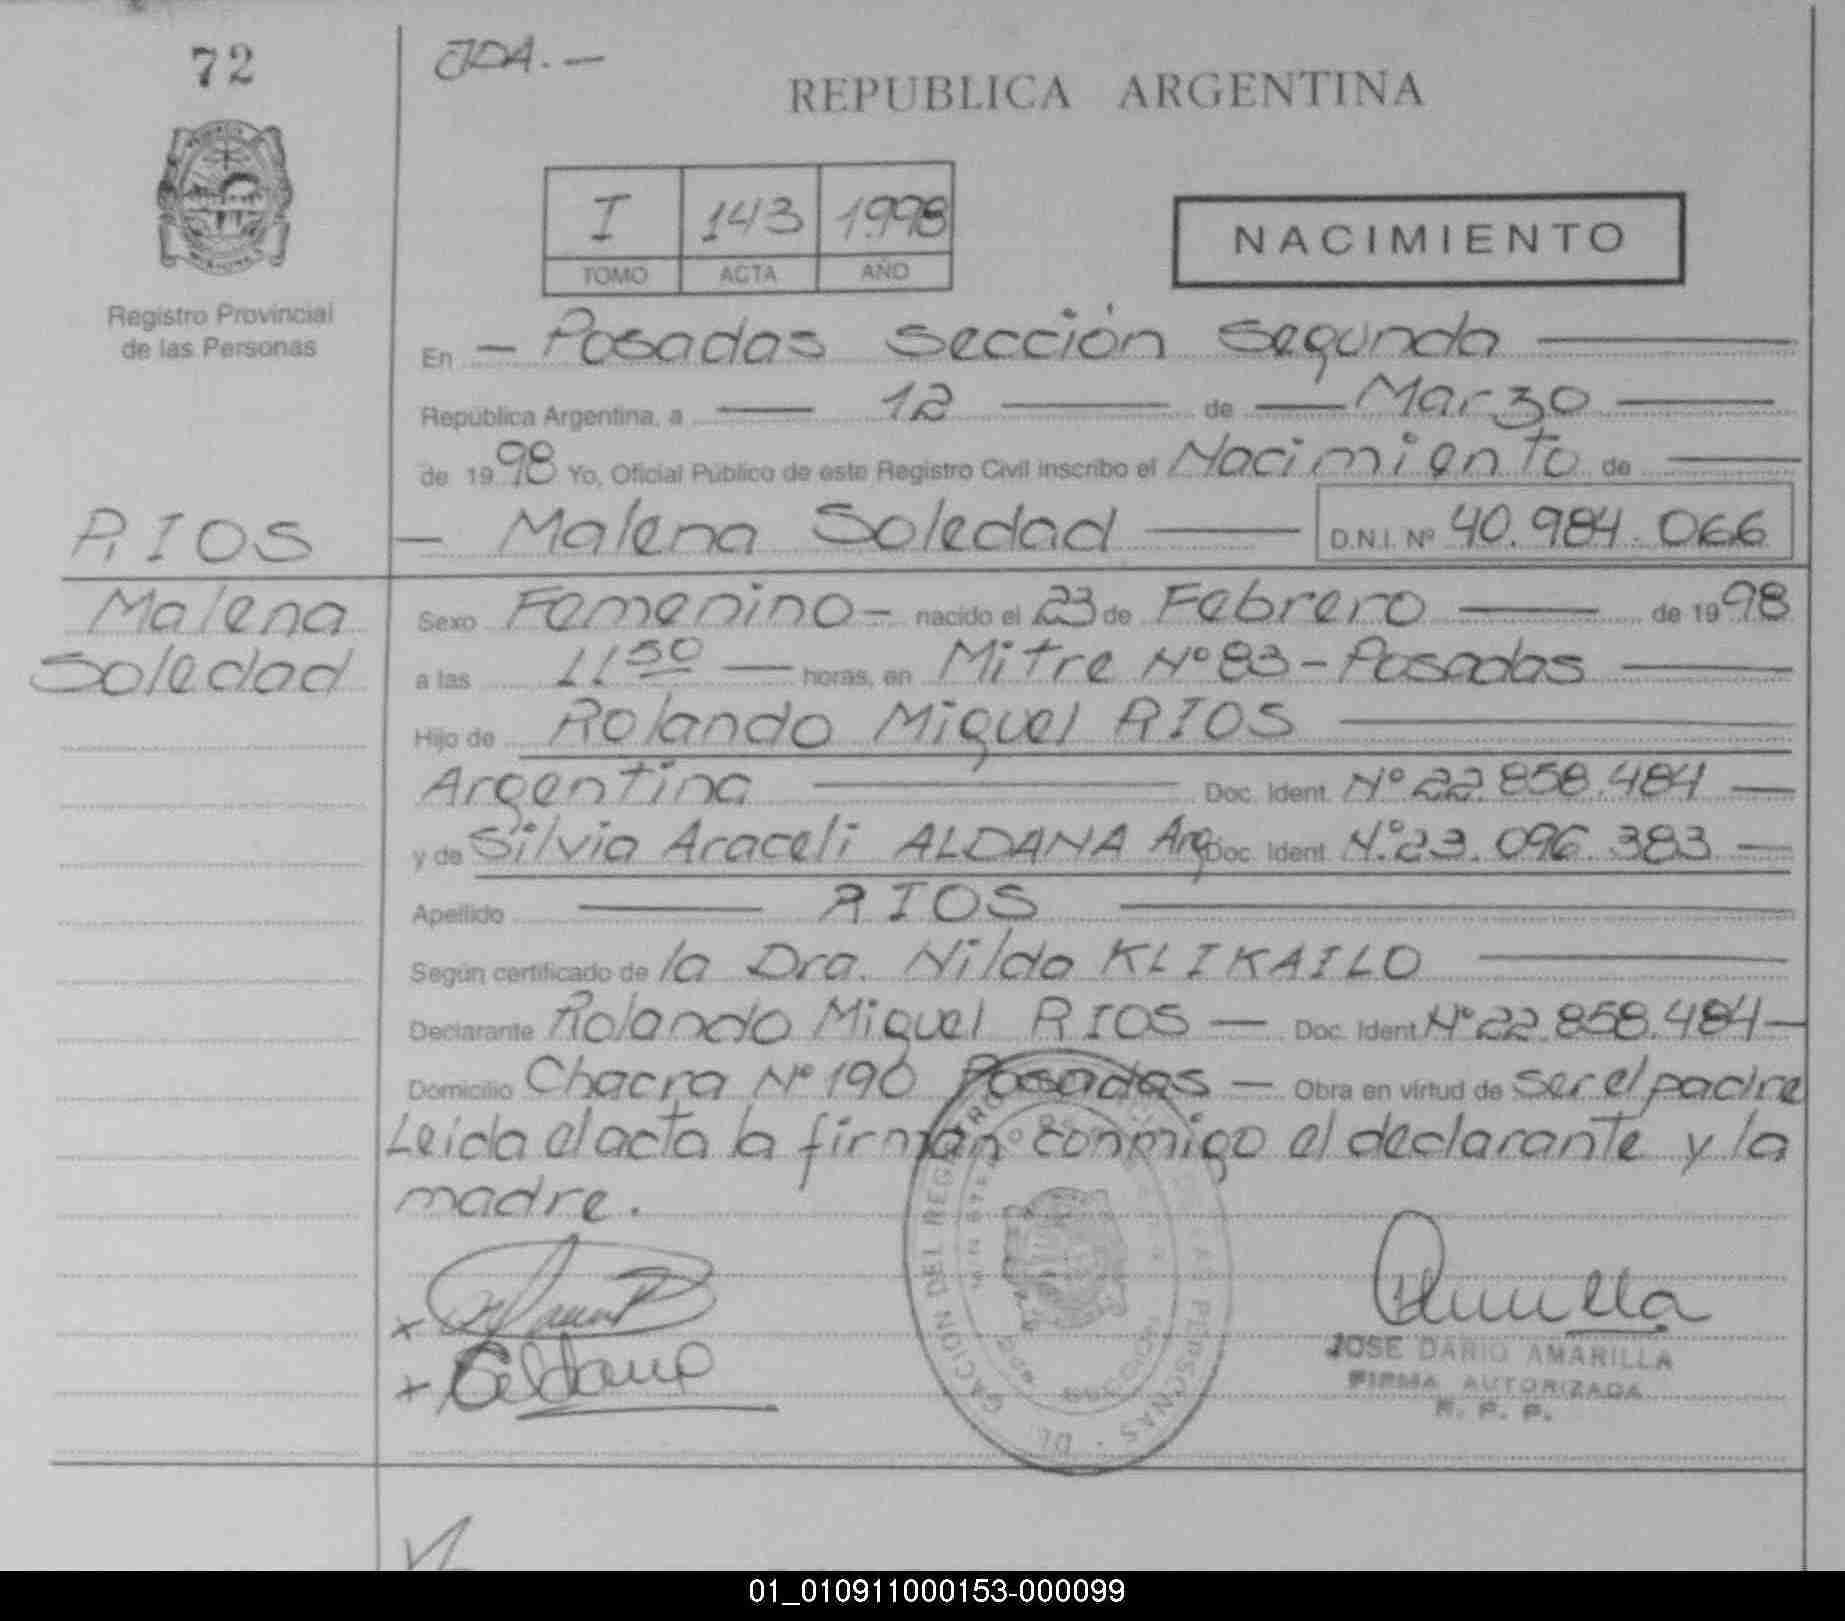 72
JDA.-
REPUBLICA ARGENTINA
I 143 1998
TOMO ACTA AÑO
NACIMIENTO
Registro Provincial
de las Personas
En - Posadas sección segunda
República Argentina, a 12 de Marzo
de 1998 Yo, Oficial Público de este Registro Civil inscribo el Nacimiento de
RIOS
- Malena Soledad D.N.I. Nº 40.984.066
Malena
Soledad
Sexo Femenino - nacido el 23 de Febrero de 1998
a las 11 50 horas, en Mitre Nº 83 - Posadas
Hijo de Rolando Miguel RIOS
Argentina Doc. Ident. Nº 22.858.484
y de Silvia Araceli ALDANA Arg Doc. Ident. Nº 23.096.383
Apellido RIOS
Según certificado de la Dra. Nilda KLIKAILO
Declarante Rolando Miguel RIOS - Doc. Ident. Nº 22.858.484
Domicilio Chacra Nº 190 Posadas - Obra en virtud de ser el padre
Leida el acta la firman conmigo el declarante y la
madre.
JOSE DARIO AMARILLA
FIRMA AUTORIZADA
R. P. P.
01_010911000153-000099